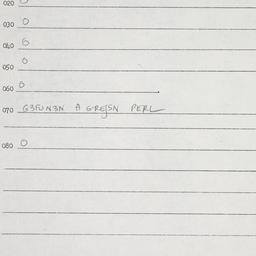 020 0
030 0
040 G
050 0
060 0
070 G3FUN3N A GREJSN PERL
080 0